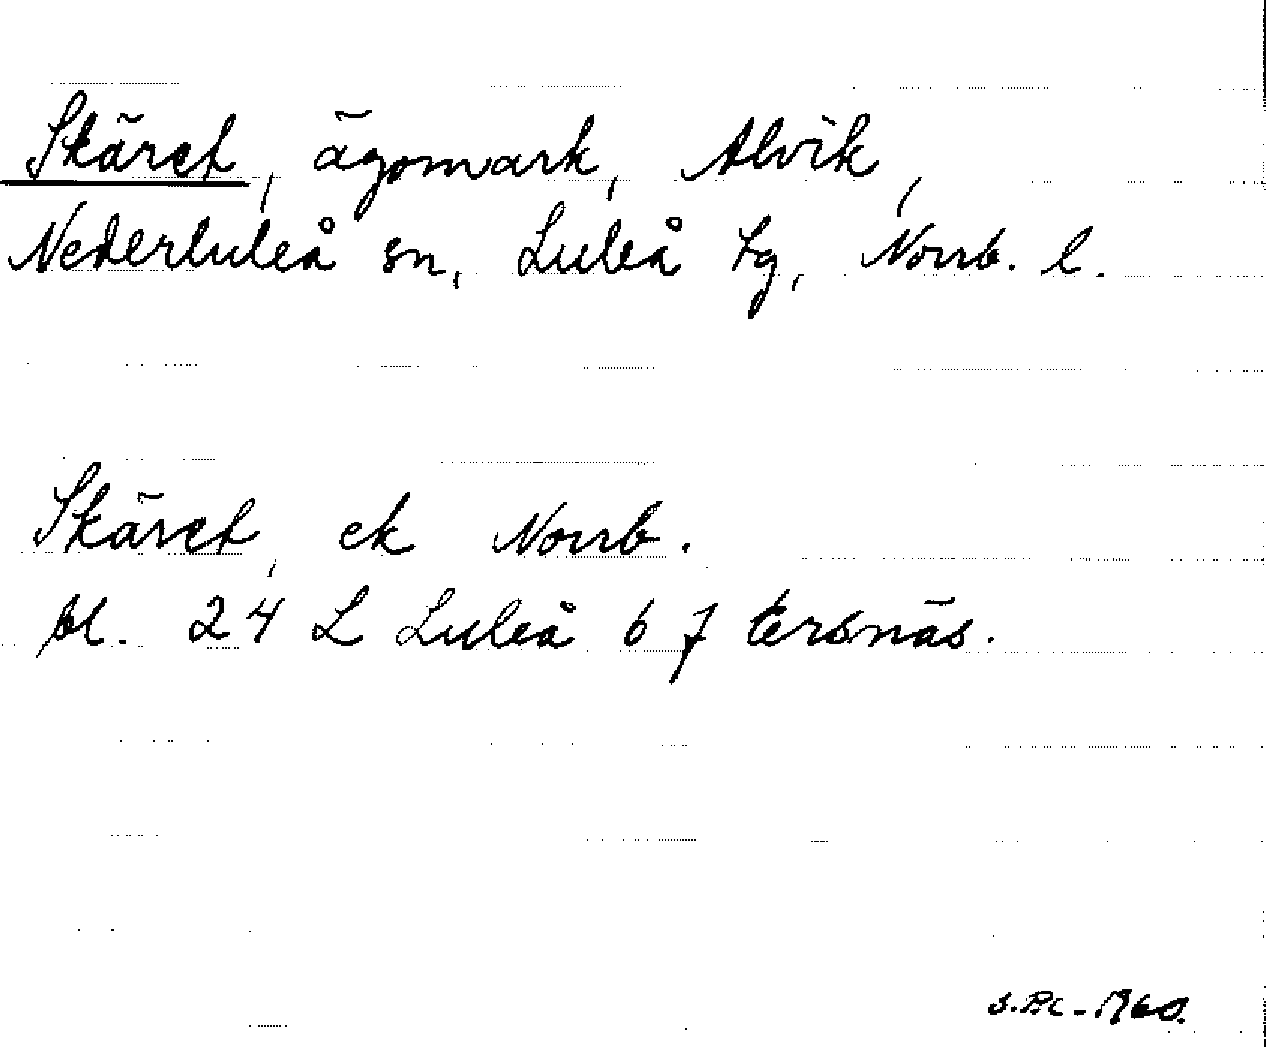 Skäret, ägomark, Alvik,
Nederluleå sn, Luleå tg, Norrb. l.
Skäret, ek Norrb.
bl. 24 L Luleå 6 f Ersnäs.
1960.